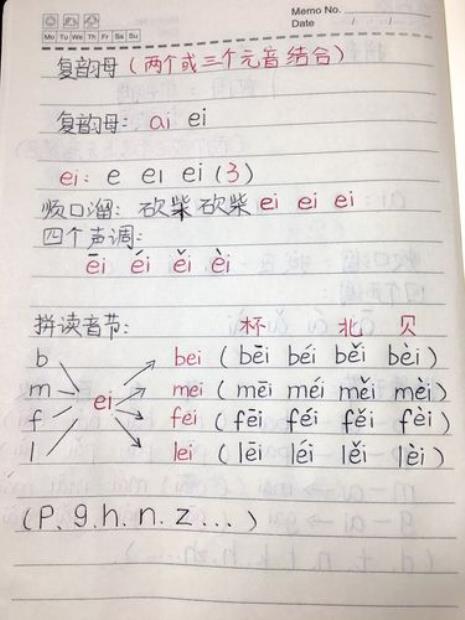 Memo No.
Date / /
Mo Tu We Th Fr Sa Su
复韵母（两个或三个元音结合）
复韵母：ai ei
ei：e eı ei（3）
顺口溜：砍柴砍柴 ei ei ei
四个声调：
ēi éi ěi èi
拼读音节：杯 北 贝
b bei（bēi béi běi bèi）
m mei（mēi méi měi mèi）
ei
f fei（fēi féi fěi fèi）
l lei（lēi léi lěi lèi）
（P、g、h、n、z...）